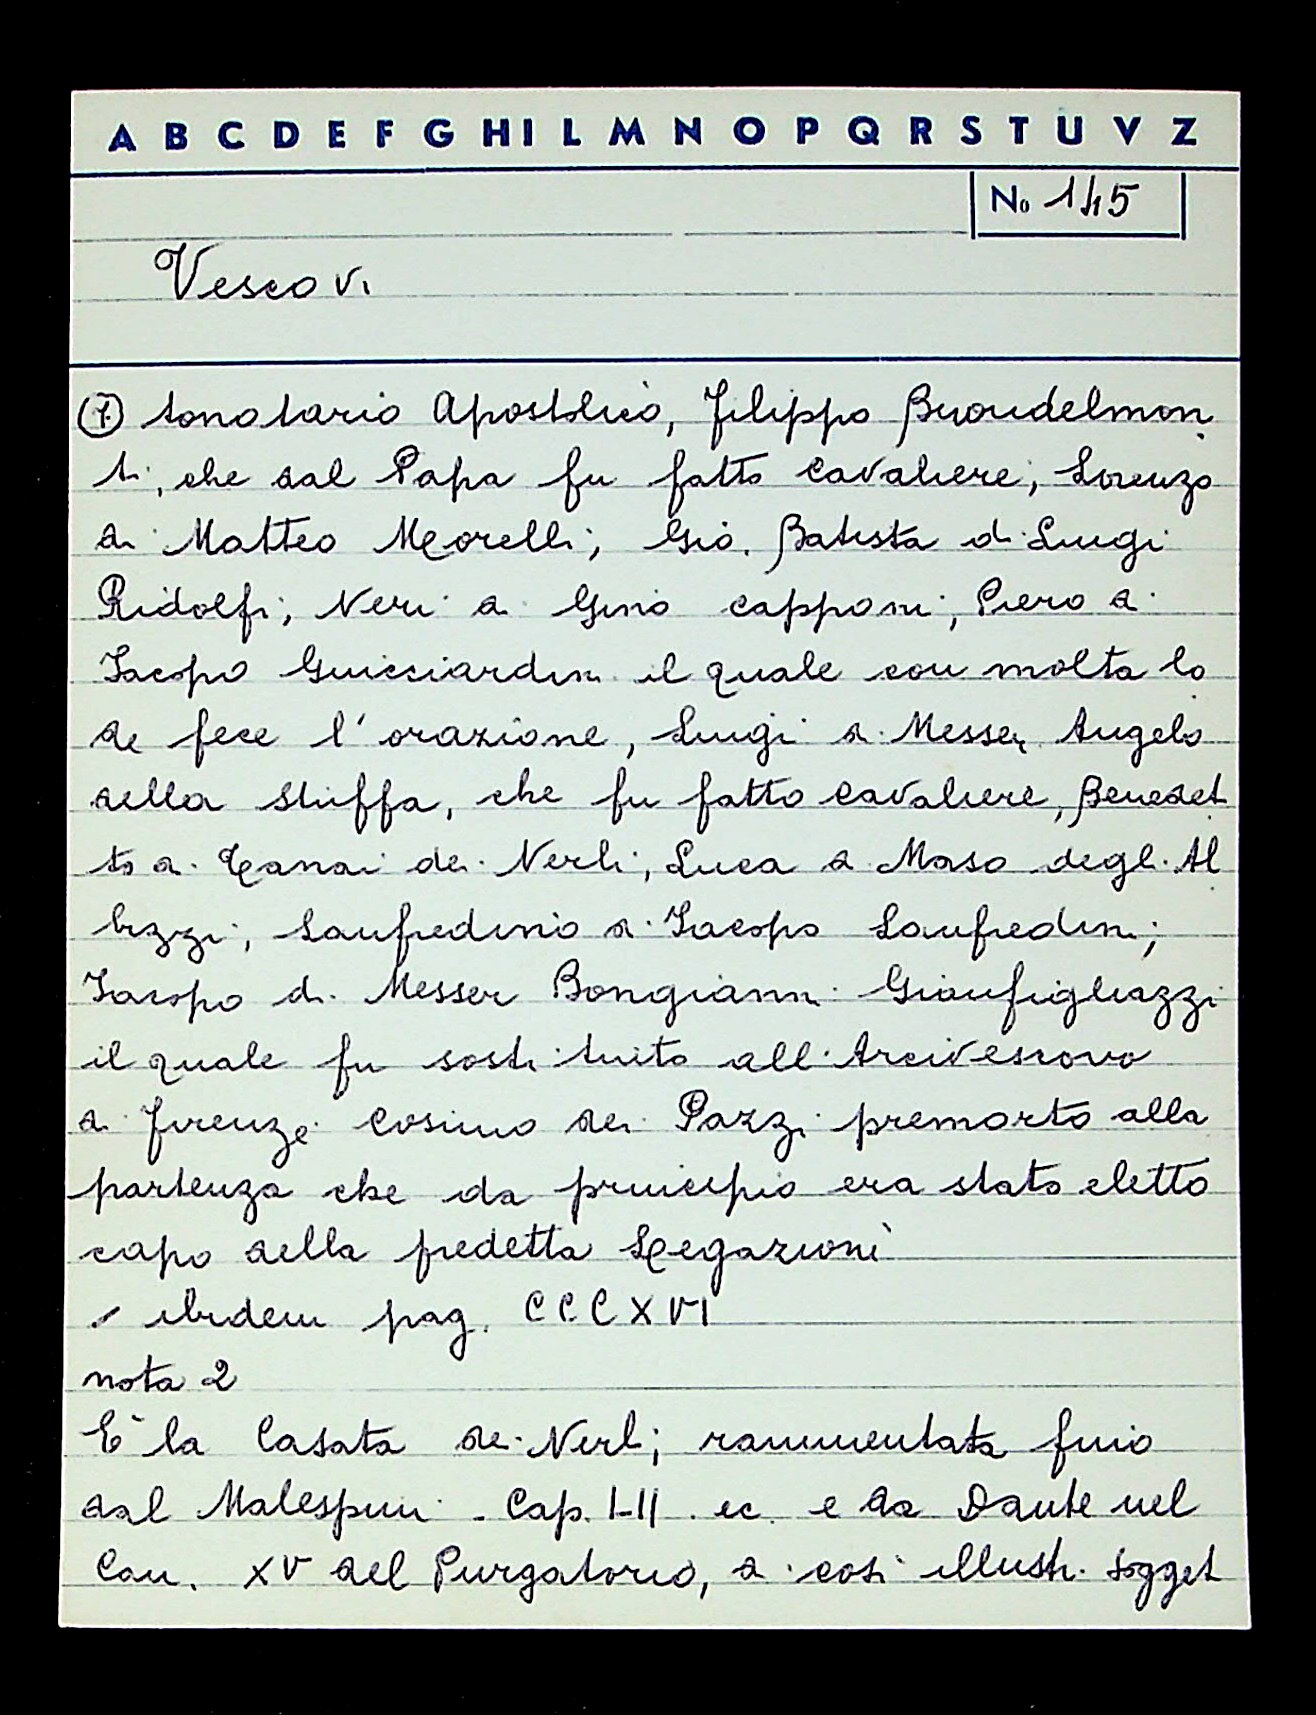 A B C D E F G H I L M N O P Q R S T U V Z
No 145
Vescovi
(7) tonotario Apostolico, Filippo Buondelmon
ti, che dal Papa fu fatto Cavaliere; Lorenzo
di Matteo Morelli; Gio. Batista di Luigi
Ridolfi; Neri di Gino Capponi; Piero di
Iacopo Guicciardini il quale con molta lo
de fece l'orazione, Luigi di Messer Angelo
della Stuffa, che fu fatto Cavaliere, Benedet
to di Tanai dei Nerli; Luca di Maso degli Al
bizzi; Lanfredino di Iacopo Lanfredini;
Iacopo di Messer Bongianni Gianfigliazzi
il quale fu sostituito all'Arcivescovo
di Firenze Cosimo dei Pazzi premorto alla
partenza che da principio era stato eletto
capo della predetta Legazioni
- ibidem pag. CCCXVI
nota 2
È la Casata de' Nerli; rammentata fino
dal Malespini - Cap. I-II. ec. e da Dante nel
Can. XV del Purgatorio, di così illustri sogget